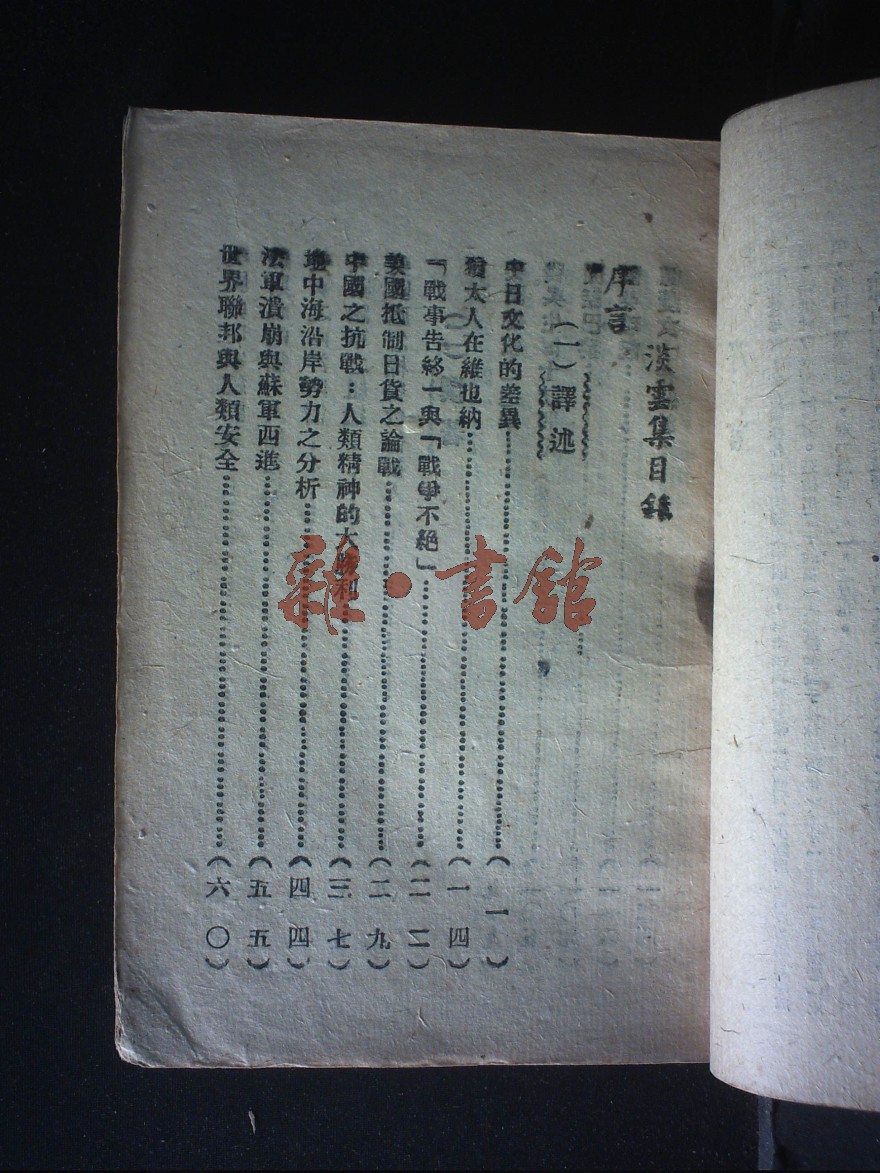 淡雲集目錄
序言
(一)譯述
中日文化的差異………(一)
猶太人在維也納………(一四)
「戰事告終」與「戰爭不絕」………(二二)
美國抵制日貨之論戰………(二九)
中國之抗戰:人類精神的大勝利………(三七)
地中海沿岸勢力之分析………(四四)
法軍潰崩與蘇軍西進………(五五)
世界聯邦與人類安全………(六〇)
雜·書館